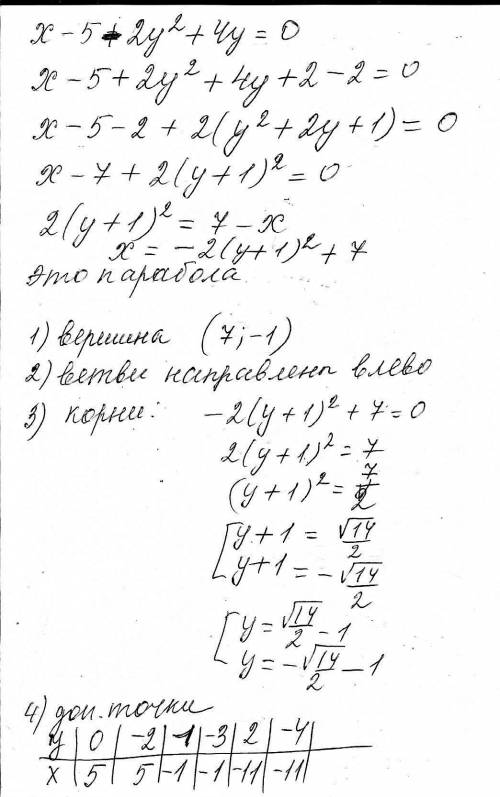 x - 5 + 2y² + 4y = 0
x - 5 + 2y² + 4y + 2 - 2 = 0
x - 5 - 2 + 2(y² + 2y + 1) = 0
x - 7 + 2(y + 1)² = 0
2(y + 1)² = 7 - x
x = -2(y+1)² + 7
Это парабола
1) вершина (7; -1)
2) ветви направлены влево
3) корни: -2(y+1)² + 7 = 0
2(y+1)² = 7
(y+1)² = 7/2
[ y + 1 = √14/2
y + 1 = -√14/2
[ y = √14/2 - 1
y = -√14/2 - 1
4) доп. точки
y | 0 | -2 | 1 | -3 | 2 | -4 |
x | 5 | 5 | -1 | -1 | -11 | -11 |